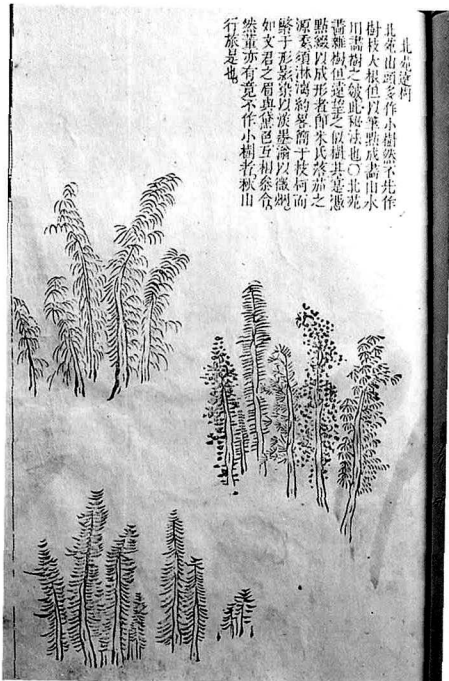 北苑遠樹
北苑山頭多作小樹然不先作
樹枝大根但以筆點成畫山水
用畫樹之皴此秘法也〇北苑
畫雜樹但遠望之似樹其實憑
點綴以成形者即米氏落茄之
源委須淋漓約畧簡于枝柯而
繁于形影染以淡墨以微烟
如文君之眉與黛色互相參合
然董亦有竟不作小樹者秋山
行旅是也